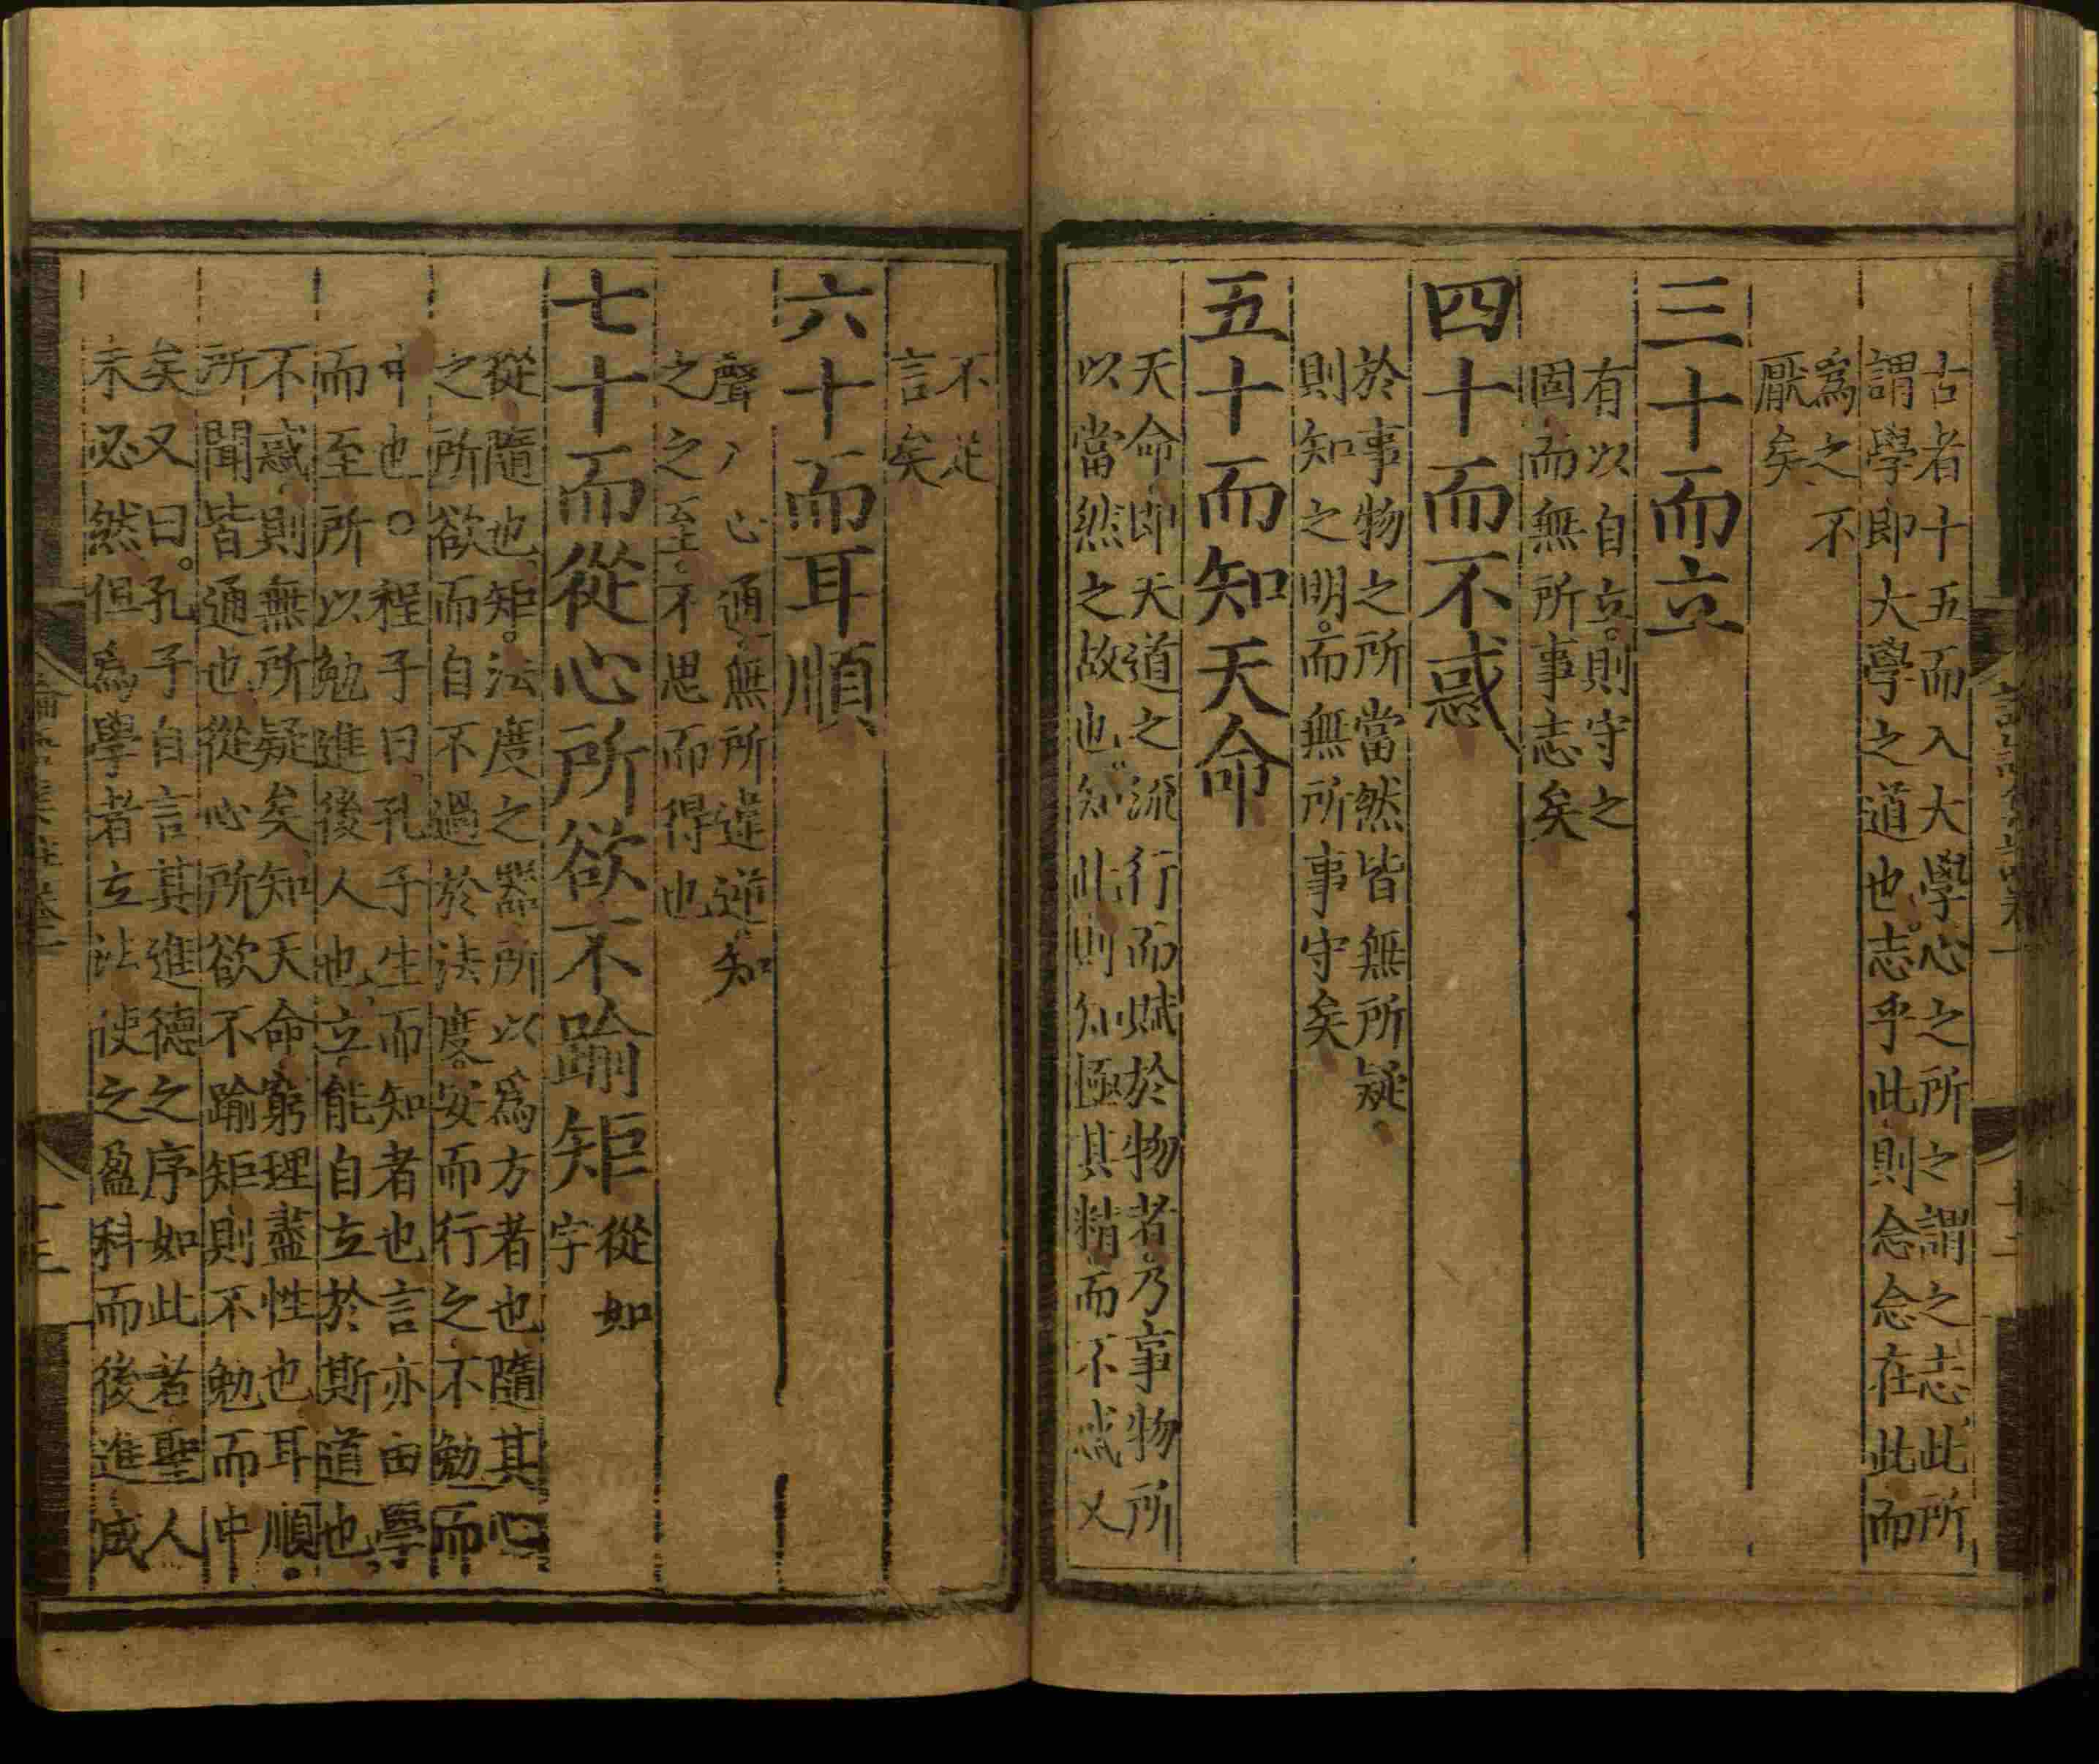 古者十五而入大學心之所之謂之志此所
謂學即大學之道也志乎此則念念在此而
為之不
厭矣
三十而立
有以自立則守之
固而無所事志矣
四十而不惑
於事物之所當然皆無所疑
則知之明而無所事守矣
五十而知天命
天命即天道之流行而賦於物者乃事物所
以當然之故也知此則知極其精而不惑又
不足
言矣
六十而耳順
聲入心通無所違逆知
之之至不思而得也
七十而從心所欲不踰矩
從如
字
從隨也矩法度之器所以為方者也隨其心
之所欲而自不過於法度安而行之不勉而
中也○程子曰孔子生而知者也言亦由學
而至所以勉進後人也立能自立於斯道也
不惑則無所疑矣知天命窮理盡性也耳順
所聞皆通也從心所欲不踰矩則不勉而中
矣又曰孔子自言其進德之序如此者聖人
未必然但為學者立法使之盈科而後進成